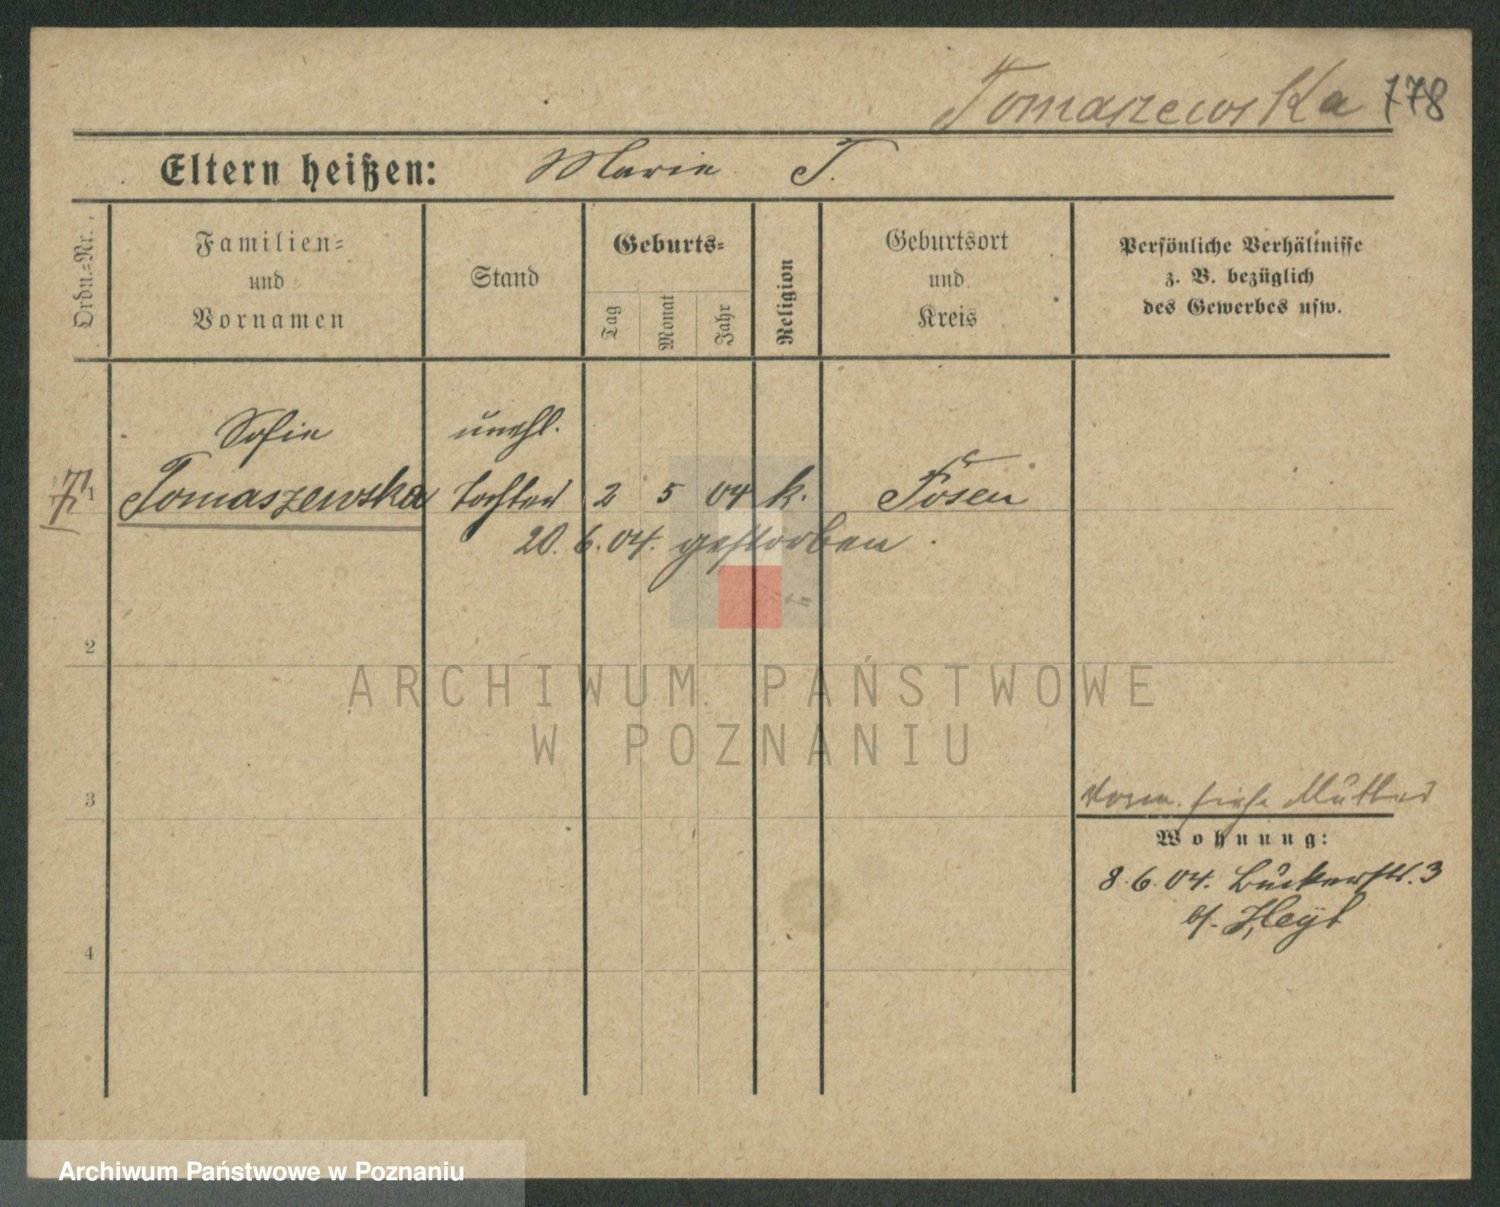 Tomaszewska 178
Eltern heißen: Marie T.
Ordn.=Nr.
Familien=
und
Vornamen
Stand
Geburts=
Tag
Monat
Jahr
Religion
Geburtsort
und
Kreis
Persönliche Verhältnisse
z. B. bezüglich
des Gewerbes usw.
Sofie unehl.
1 Tomaszewska Tochter 2 5 04 k. Posen
20. 6. 04. gestorben.
2
ARCHIWUM PAŃSTWOWE
W POZNANIU
3
siehe Mutter
Wohnung:
8. 6. 04. Bukerstr. 3
b/. Heyl
4
Archiwum Państwowe w Poznaniu